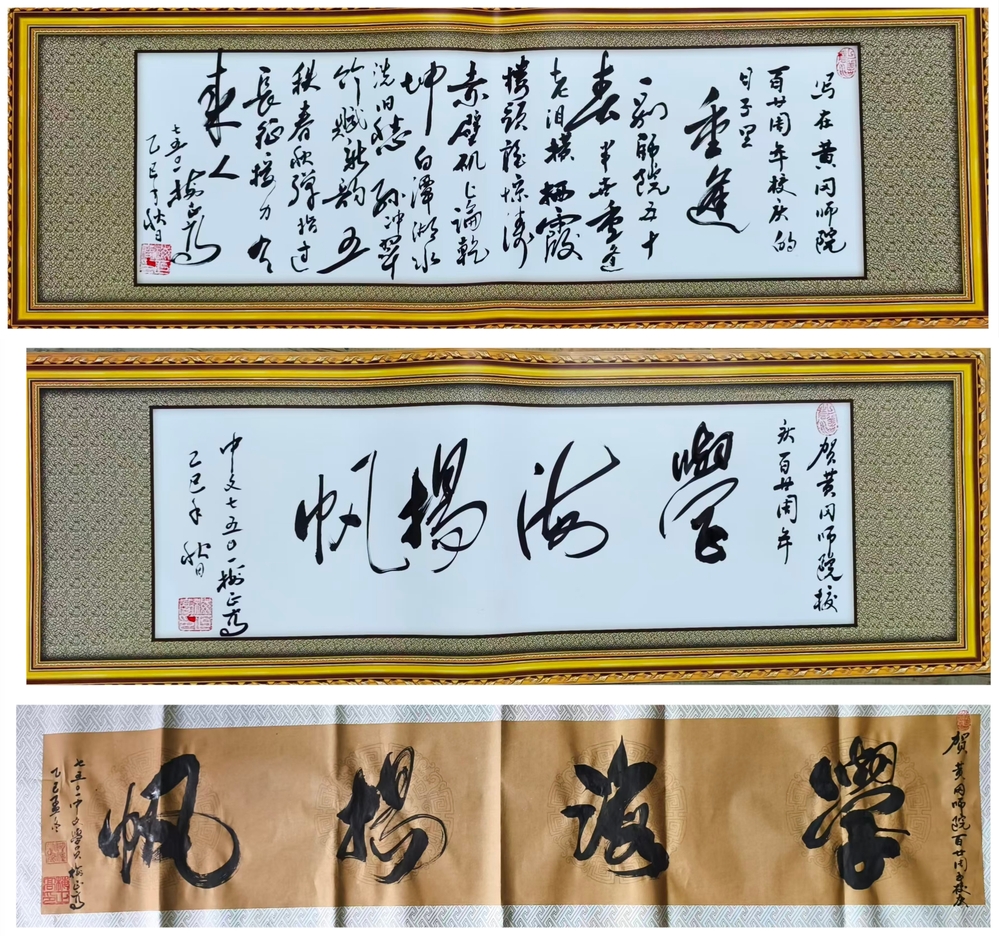 写在黄冈师院
百廿周年校庆的
日子里
重逢
一别师院五十
春半世重逢
老泪横栖霞
楼头惊涛
赤壁矶上论乾
坤白潭湖水
洗旧愁孙冲翠
竹赋新韵五
秩春秋弹指过
长征接力有
来人
七五〇一梅正高
乙巳年秋日
贺黄冈师院校
庆百廿周年
學海揚帆
中文七五〇一梅正高
乙巳年秋日
贺黄冈师院百廿周年校庆
學海揚帆
七五〇一中文學员梅正高
乙巳孟冬